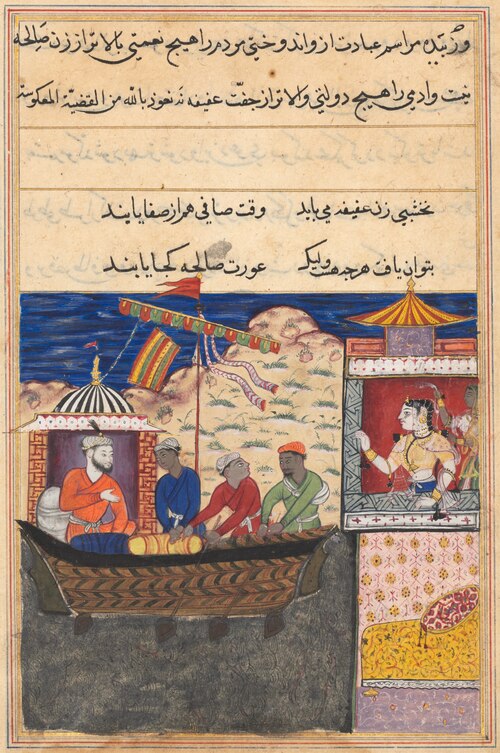 ورزیدن مراسم عبادت از واند وختی مردم را هیچ نعمتی بالاتر از زن صالحه
نیت وادمی را هیچ دولتی والاتر از جفت عفیفه نه نعوذ بالله من القضیة المعکوسة
نخشبی زن عفیفه می باید وقت صافی هم از صفا یابند
بتوان یافت هرچه هست ولیک عورت صالحه کجا یابند